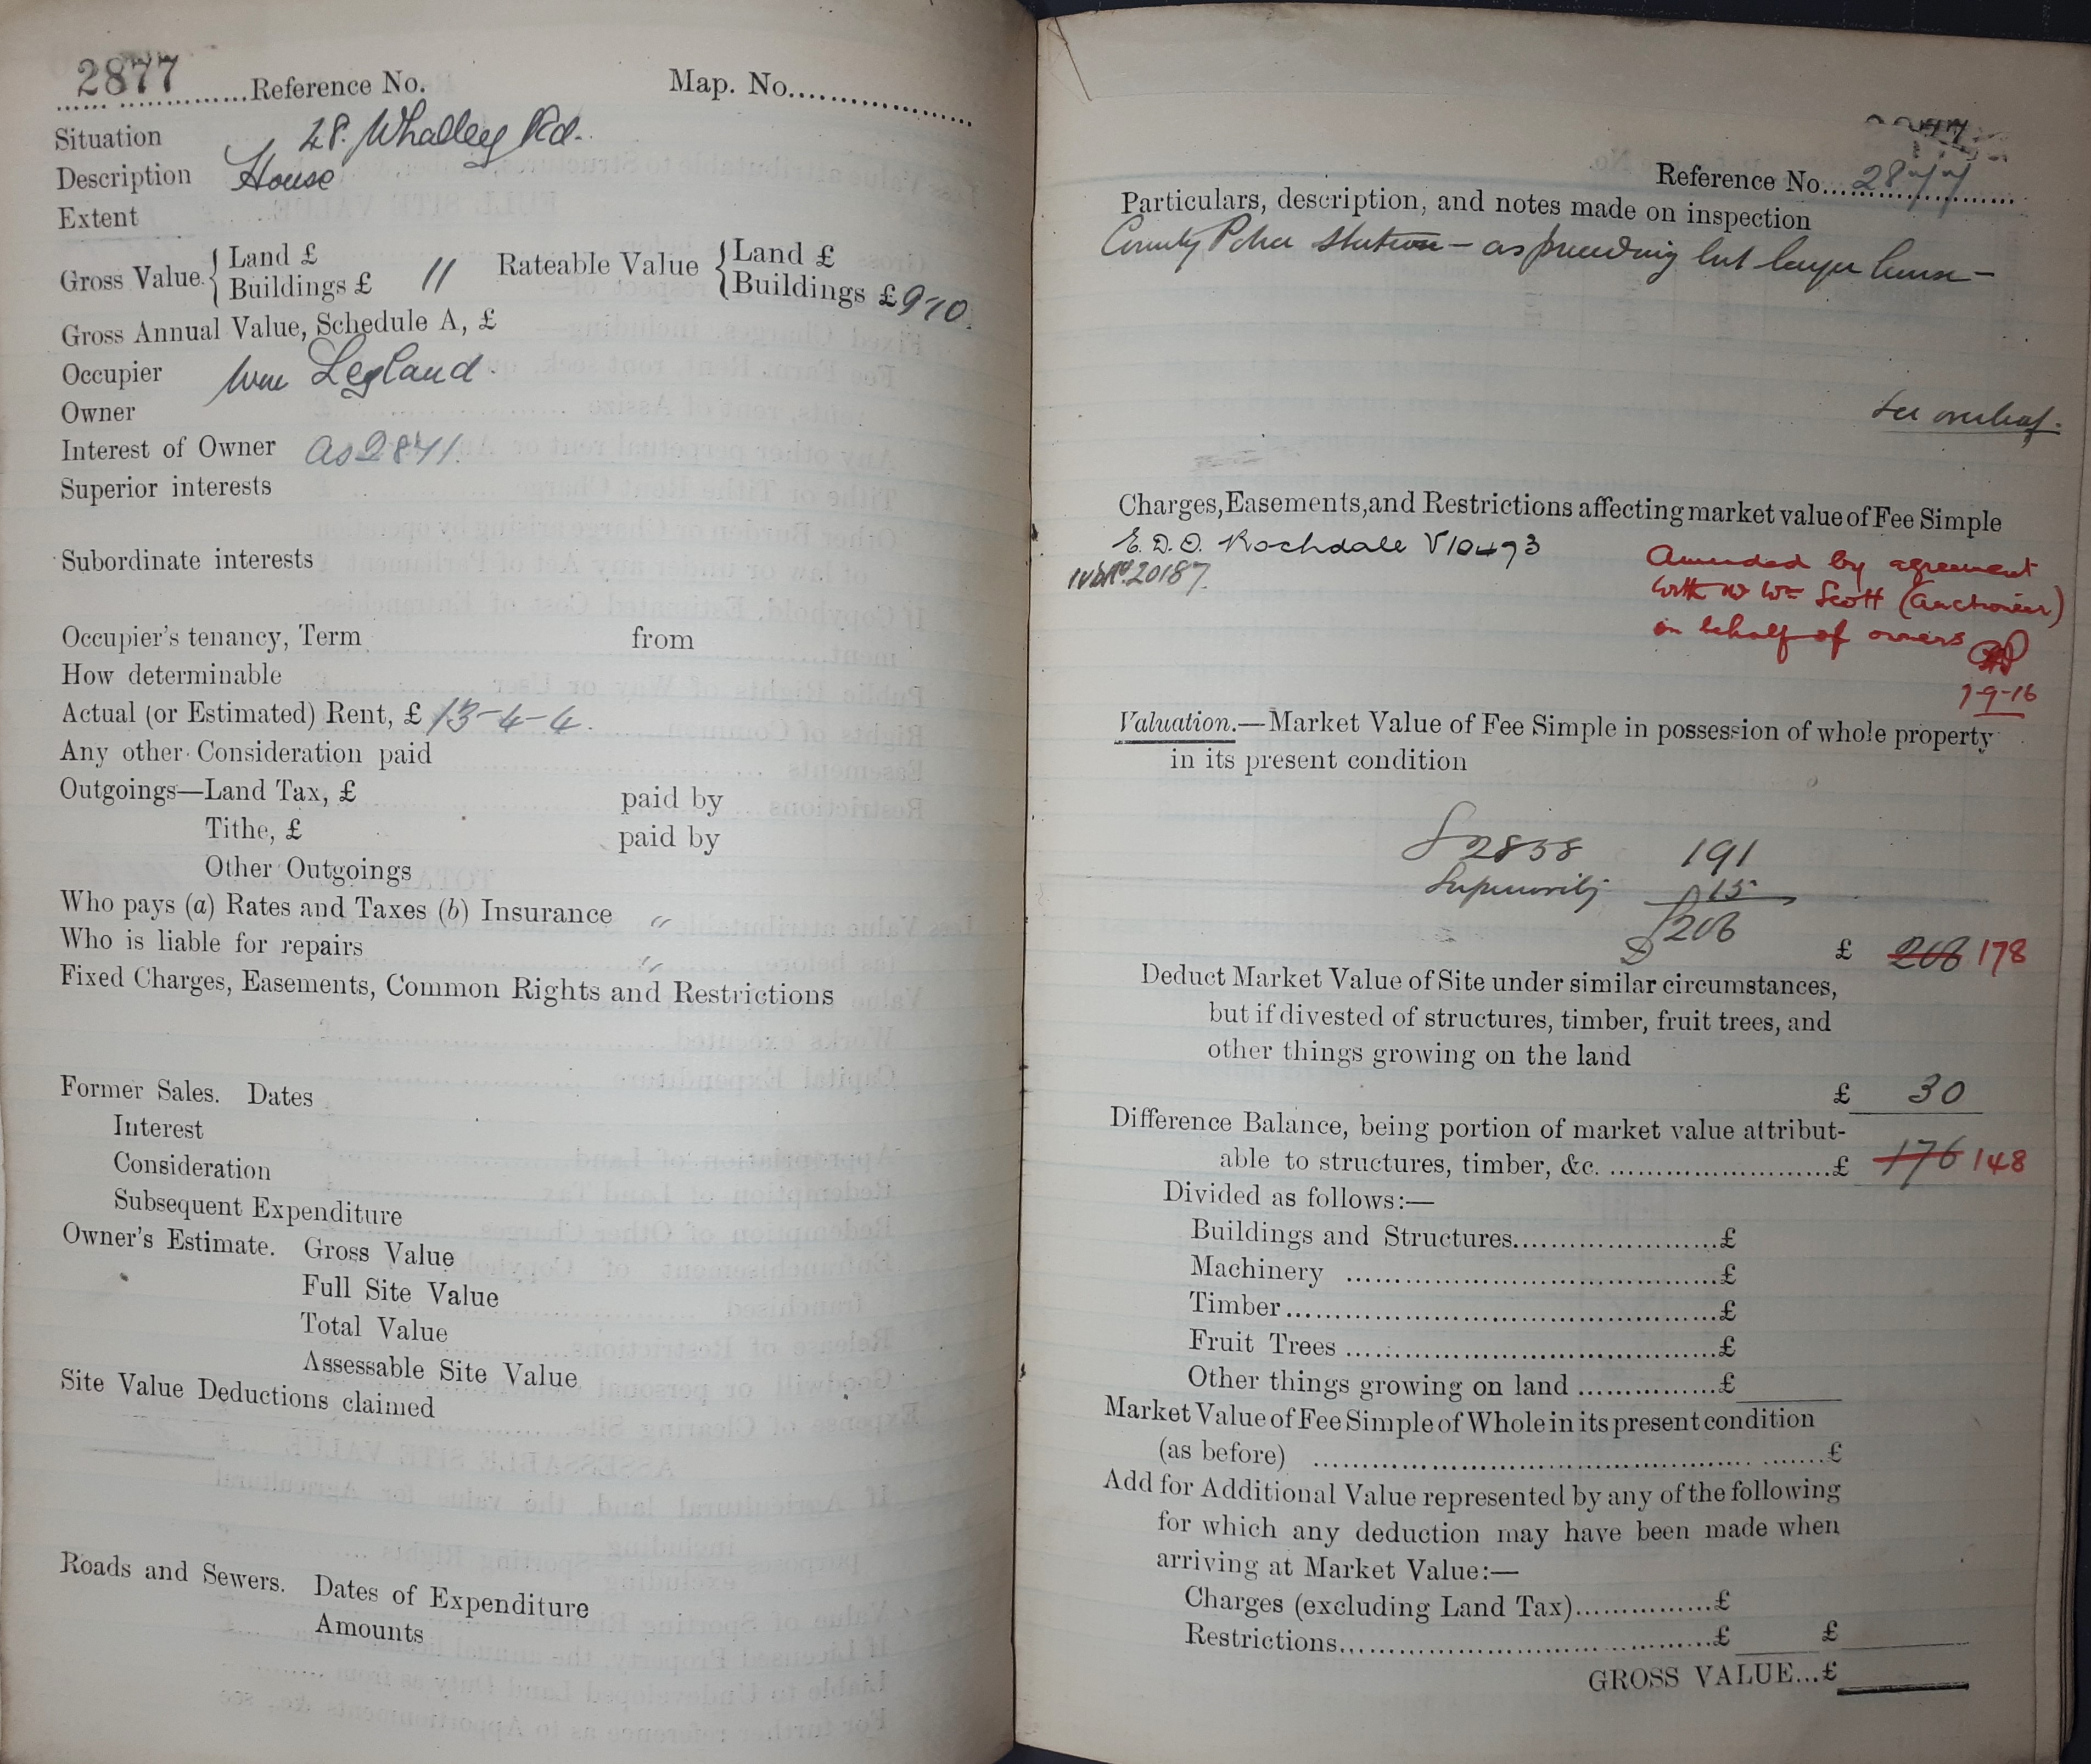 2877
Reference No. Map. No.
Situation 28. Whalley Rd.
Description House
Extent
Gross Value. { Land £
Buildings £ 11
Rateable Value { Land £
Buildings £ 9-10.
Gross Annual Value, Schedule A, £
Occupier Wm Legland.
Owner
Interest of Owner as 2841.
Superior interests
Subordinate interests
Occupier's tenancy, Term from
How determinable
Actual (or Estimated) Rent, £ 13-4-4.
Any other Consideration paid
Outgoings—Land Tax, £ paid by
Tithe, £ paid by
Other Outgoings
Who pays (a) Rates and Taxes (b) Insurance "
Who is liable for repairs "
Fixed Charges, Easements, Common Rights and Restrictions
Former Sales. Dates
Interest
Consideration
Subsequent Expenditure
Owner's Estimate. Gross Value
Full Site Value
Total Value
Assessable Site Value
Site Value Deductions claimed
Roads and Sewers. Dates of Expenditure
Amounts
Reference No. 2877
Particulars, description, and notes made on inspection
County Police Station — as preceding but larger house —
See overleaf.
Charges, Easements, and Restrictions affecting market value of Fee Simple
E. D. O. Rochdale V10493
20187.
Amended by agreement
with Mr Wm Scott (Auctioneer)
on behalf of owners
1-9-16
Valuation.—Market Value of Fee Simple in possession of whole property
in its present condition
2858 191
Superiority 15
£206
£ 206 178
Deduct Market Value of Site under similar circumstances,
but if divested of structures, timber, fruit trees, and
other things growing on the land
£ 30
Difference Balance, being portion of market value attribut-
able to structures, timber, &c. £ 176 148
Divided as follows:—
Buildings and Structures £
Machinery £
Timber £
Fruit Trees £
Other things growing on land £
Market Value of Fee Simple of Whole in its present condition
(as before) £
Add for Additional Value represented by any of the following
for which any deduction may have been made when
arriving at Market Value:—
Charges (excluding Land Tax) £
Restrictions £ £
GROSS VALUE...£